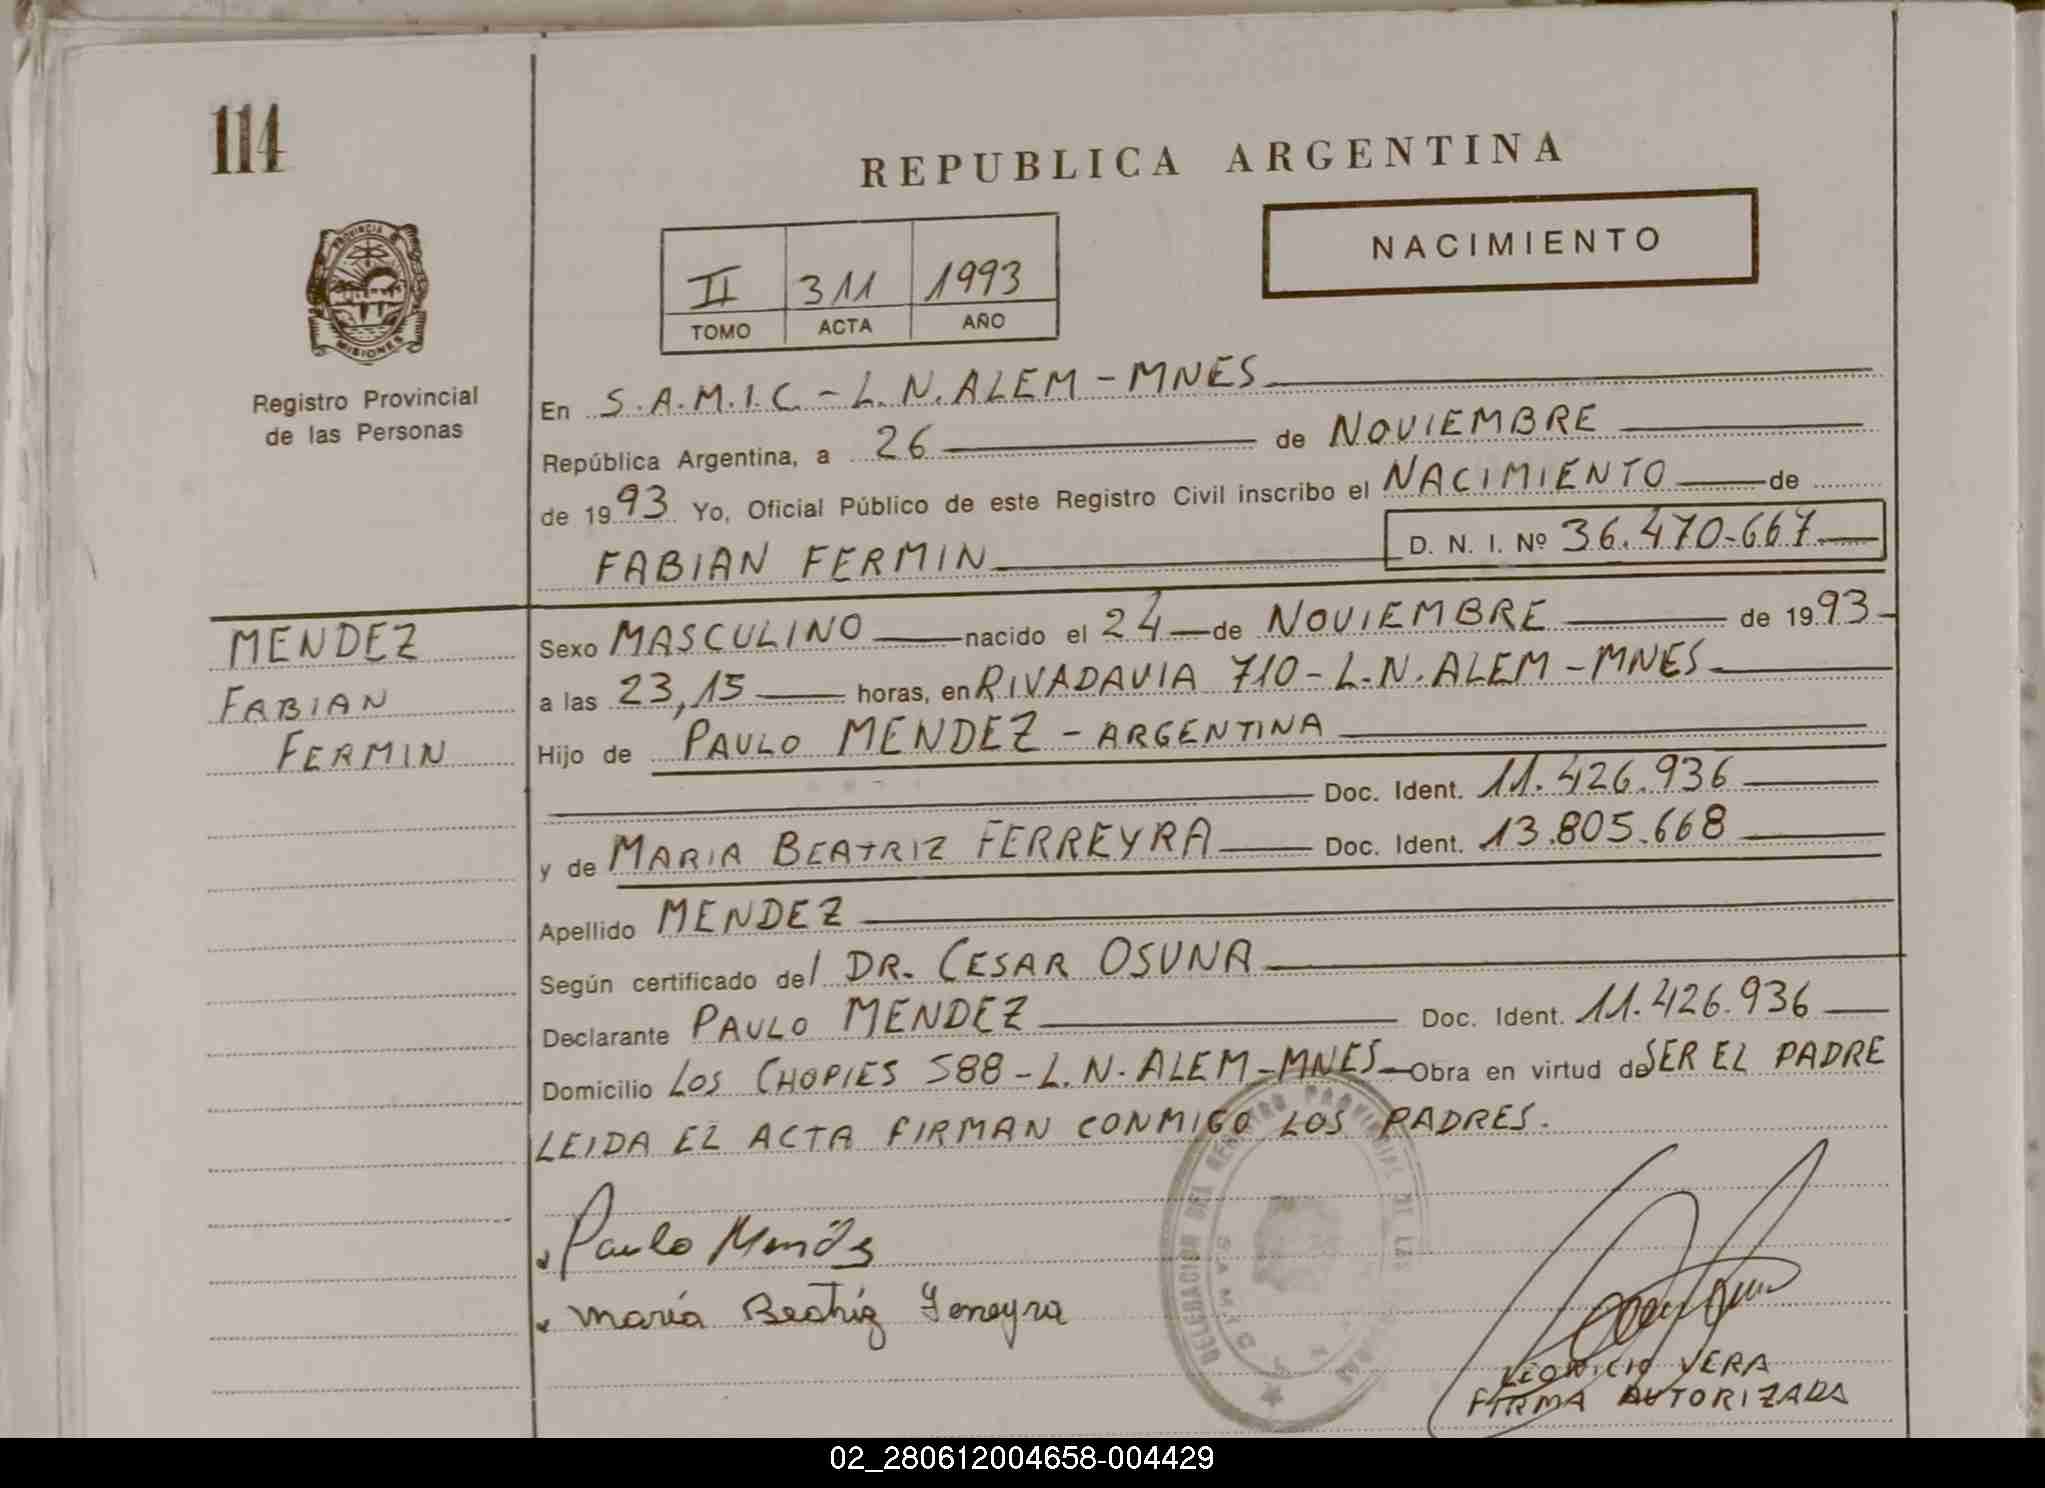 114
REPUBLICA ARGENTINA
NACIMIENTO
II 311 1993
TOMO ACTA AÑO
PROVINCIA DE
MISIONES
Registro Provincial
de las Personas
En S.A.M.I.C. - L.N. ALEM - MNES
República Argentina, a 26 de NOVIEMBRE
de 1993 Yo, Oficial Público de este Registro Civil inscribo el NACIMIENTO de
FABIAN FERMIN D. N. I. Nº 36.470.667
MENDEZ
FABIAN
FERMIN
Sexo MASCULINO nacido el 24 de NOVIEMBRE de 1993
a las 23,15 horas, en RIVADAVIA 710 - L.N. ALEM - MNES
Hijo de PAULO MENDEZ - ARGENTINA
Doc. Ident. 11.426.936
y de MARIA BEATRIZ FERREYRA Doc. Ident. 13.805.668
Apellido MENDEZ
Según certificado del DR. CESAR OSUNA
Declarante PAULO MENDEZ Doc. Ident. 11.426.936
Domicilio LOS CHOPIES 588 - L.N. ALEM - MNES Obra en virtud de SER EL PADRE
LEIDA EL ACTA FIRMAN CONMIGO LOS PADRES.
Paulo Mendez
María Beatriz Ferreyra
DELEGACION DEL REGISTRO PROVINCIAL DE LAS
S.A.M.I.C.
LEONICIO VERA
FIRMA AUTORIZADA
02_280612004658-004429